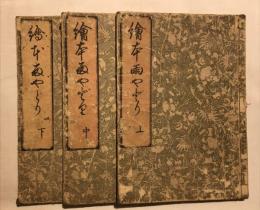 繪本雨やどり 上
繪本雨やどり 中
繪本雨やどり 下